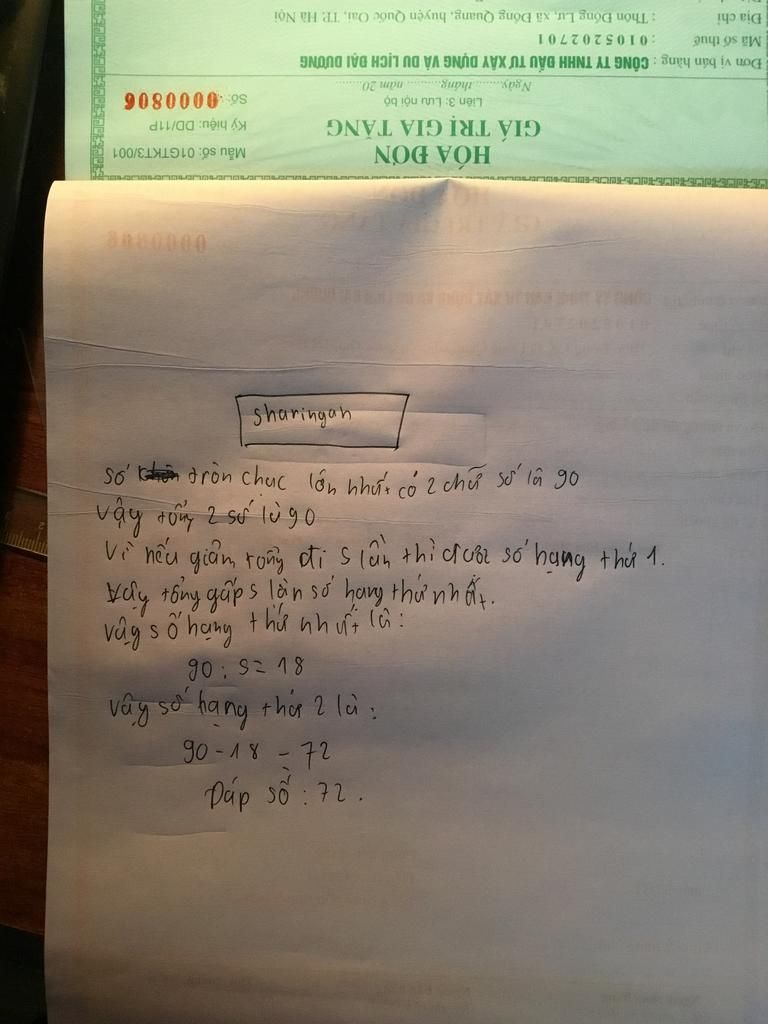 Địa chỉ : Thôn Đồng Lư, xã Đồng Quang, huyện Quốc Oai, TP. Hà Nội
Mã số thuế : 0105202701
Đơn vị bán hàng : CÔNG TY TNHH ĐẦU TƯ XÂY DỰNG VÀ DU LỊCH ĐẠI DƯƠNG
Ngày........ tháng......... năm 20..........
Liên 3: Lưu nội bộ
Số: 0000806
GIÁ TRỊ GIA TĂNG
Ký hiệu: DD/11P
HÓA ĐƠN
Mẫu số: 01GTKT3/001
sharingan
số tròn chục lớn nhất có 2 chữ số là 90
Vậy tổng 2 số là 90
Vì nếu giảm tổng đi 5 lần thì được số hạng thứ 1.
Vậy tổng gấp 5 lần số hạng thứ nhất.
Vậy số hạng thứ nhất là:
90 : 5 = 18
Vậy số hạng thứ 2 là:
90 - 18 = 72
Đáp số : 72.